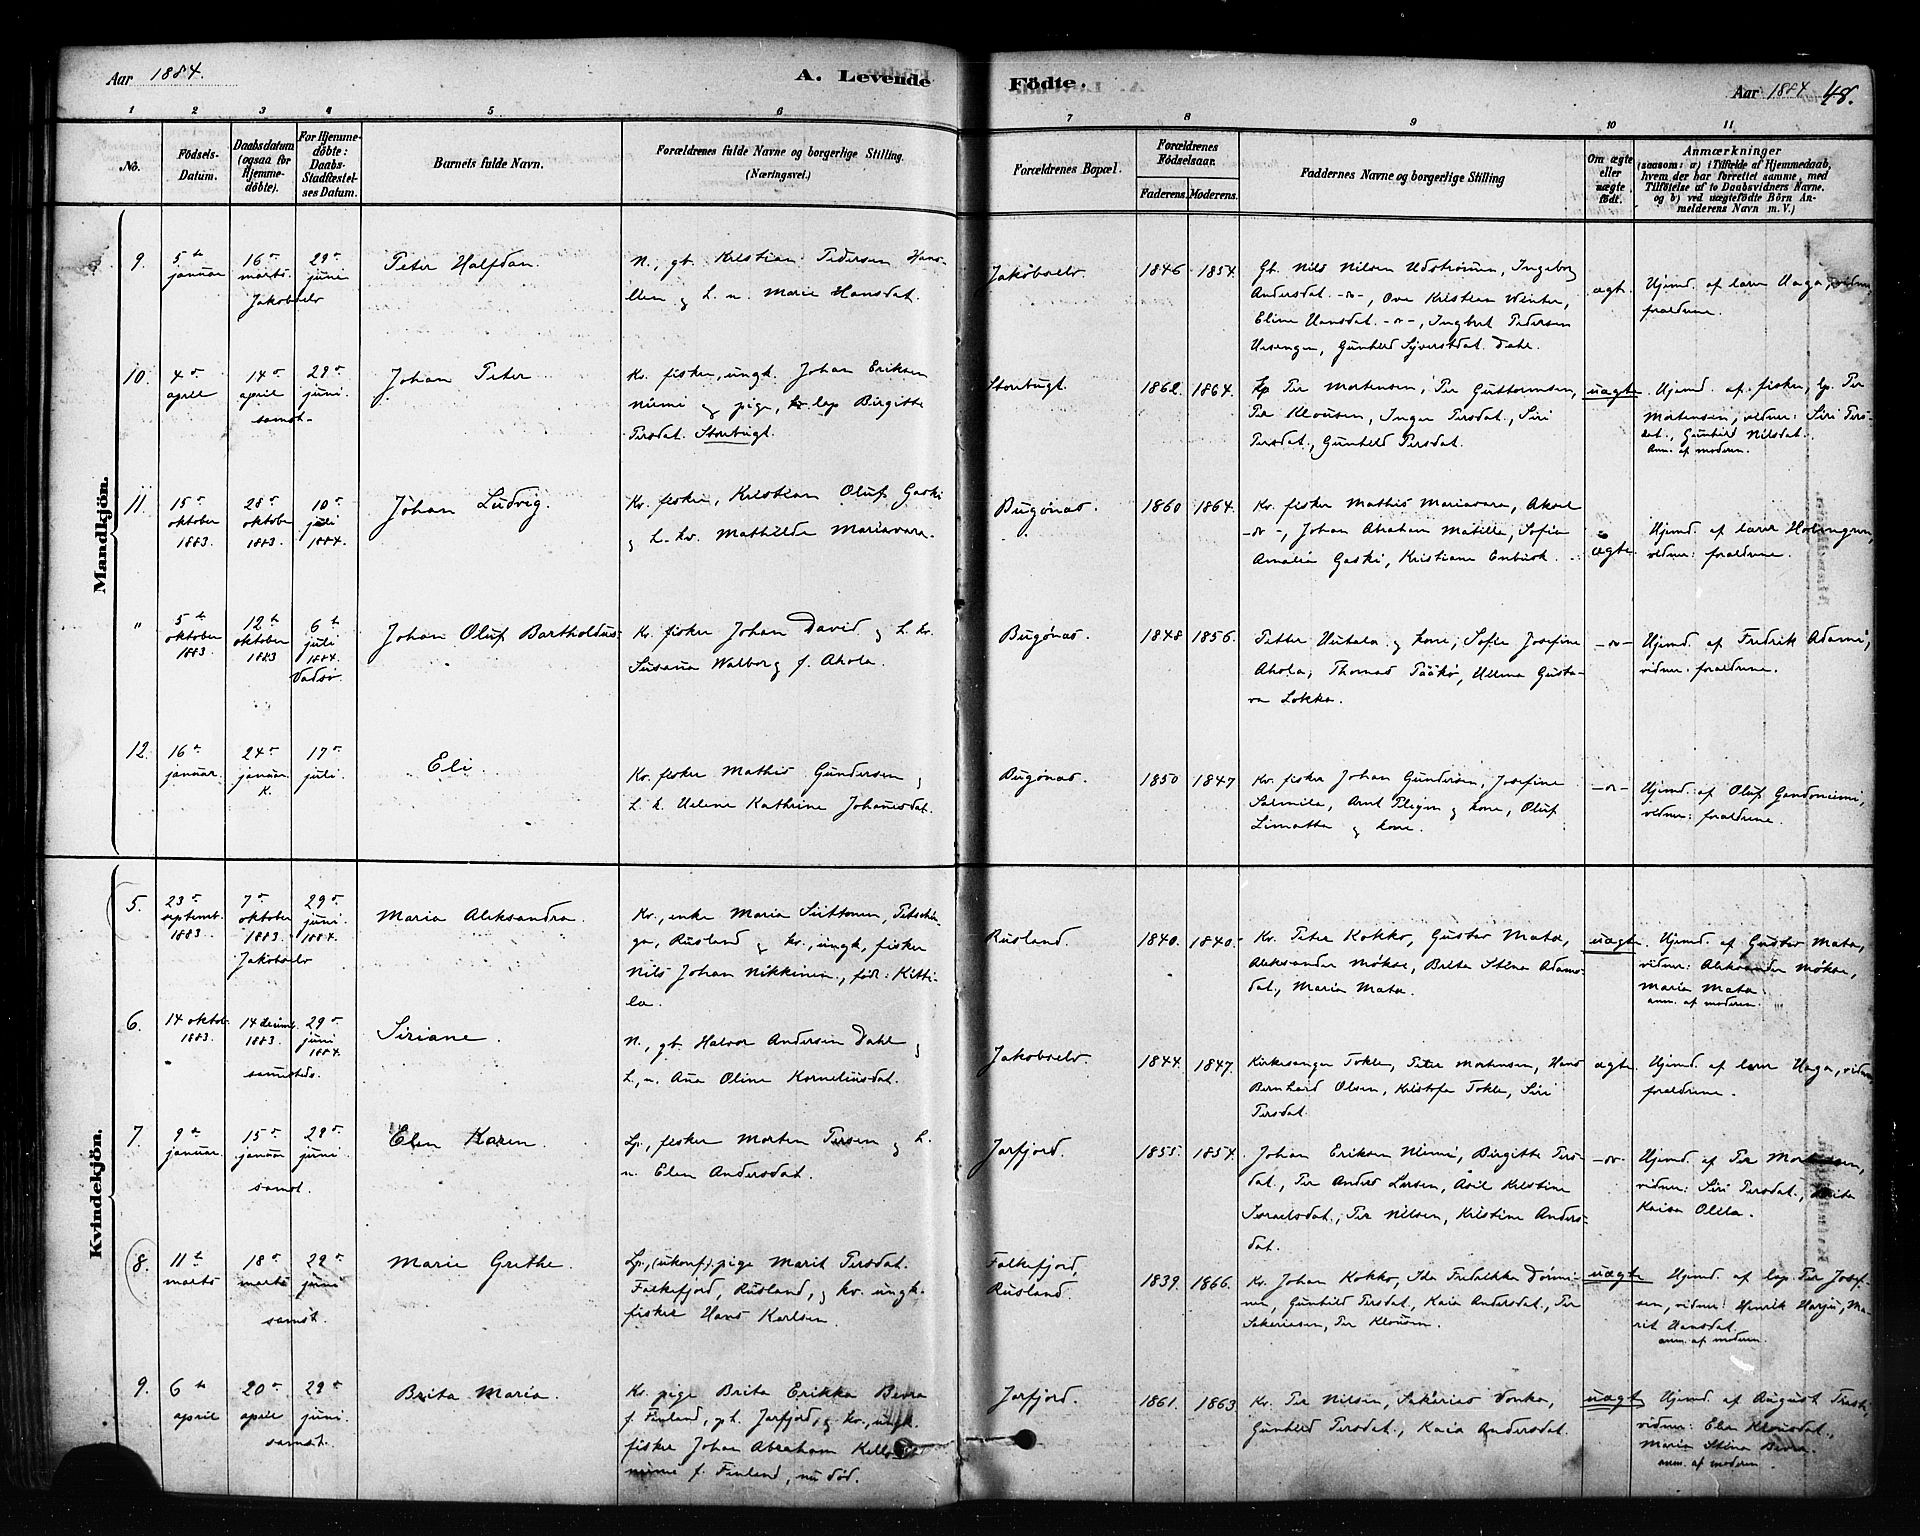 Aar 1884.
A. Levende
Födte.
Aar 1884
48.
1 2 3 4 5 6 7 8 9 10 11
No.
Födsels-
Datum.
Daabsdatum
(ogsaa for
Hjemme-
döbte).
For Hjemme-
döbte:
Daabs-
Stadfæstel-
ses Datum.
Barnets fulde Navn.
Forældrenes fulde Navne og borgerlige Stilling.
(Næringsvei.)
Forældrenes Bopæl.
Forældrenes
Födselsaar.
Faderens. Moderens.
Faddernes Navne og borgerlige Stilling
Om ægte
eller
uægte
født.
Anmærkninger
(saasom: a) i Tilfælde af Hjemmedaab,
hvem der har forrettet samme, med
Tilföielse af to Daabsvidners Navne.
og b) ved uægtefödte Börn An-
melderens Navn m. V.)
Mandkjön.
9.
5te
januar
16de
marts
Jakobselv
29de
juni
Peter Halfdan.
N., gb. Kristian Pedersen Hans-
og h. n. Marie Hansdat.
Jakobselv.
1846 1854.
Gb. Nils Nilsen Udstrømmen, Ingeborg
Andersdat. -o-, Ove Kristian Winter,
Eline Hansdat. -o-, Ingbret Pedersen
Gunhild Sjverstdat. Dahl.
ægt.
Hjemd. af lærer Haga, vidner,
forældrene.
10.
4de
april
14de
april
samst.
29de
juni.
Johan Peter
Kv. fisker, ungk. Johan Eriksen
Niemi og pige, lap Birgitte
Persdat. Storbugt.
Storbugt.
1862. 1864.
Lp. Per Mortensen, Per Guttormsen,
Per Klausen, Inger Persdat., Siri
Persdat., Gunhild Persdat.
uægte
Hjemd. af fisker, lp. Per
Mortensen, vidner: Siri Pers-
dat., Gunhild Nilsdat.
Anm. af moderen.
11.
15de
oktober
1883
28de
oktober
1883.
10de
juli
1884.
Johan Ludvig.
Kv. fisker, Kristian Oluf Gaski
og h. kv. Mathilde Mariavara.
Bugønæs.
1860 1864.
Kv. fisker Mathis Mariavara, Aksel
-o-, Johan Abraham Matille, Sofie
Amalia Gaski, Kristiane Enbusk.
ægte
Hjemd. af lærer Holmgren,
vidner: forældrene.
"
5te
oktober
1883
12te
oktober
1883
6te
juli
1884.
Vadsø.
Johan Oluf Bartholdus.
Kv. fisker Johan David og h. kv.
Susana Walborg f. Ahola.
Bugønæs.
1848 1856.
Petter Uutala og kone, Sofie Josefine
Ahola, Thomas Pääkø, Ulima Gusta-
va Lokka.
-o-
Hjemd. af Fredrik Adami,
vidner: forældrene.
12.
16de
januar.
24de
januar
K.
17de
juli.
Eli
Kv. fisker Mathis Gundersen og
h. k. Helene Kathrine Johanesdat.
Bugønæs.
1850 1847
Kv. fisker Johan Gundersen, Josefine
Salmila, Arnt Pleym og kone, Oluf
Limatta og kone.
-o-
Hjemd. af Oluf Gandoniemi,
vidner: forældrene.
Kvindekjön.
5.
23de
septembr.
1883.
7de
oktober
1883.
Jakobselv
29de
juni.
1884.
Maria Aleksandra.
Kv., enke Maria Siittonen, Petschin-
ga, Rusland og kv., ungk. fisker
Nils Johan Nikkinen, fød: Kitti-
la.
Rusland.
1840. 1840.
Kv. Peter Kokko, Gustav Mata,
Aleksander Mökæ, Brita Stina Adams-
dat., Maria Mata.
uægte
Hjemd. af Gustav Mata,
vidner: Aleksander Mökæ,
Maria Mata
anm. af moderen.
6.
14 oktob.
1883.
14 decemb.
1883.
samsteds.
29de
juni
1884.
Siriane.
N., gb. Halvor Andersen Dahl og
h., n. Ana Oline Korneliusdat.
Jakobselv.
1844. 1847.
Kirkesanger Tokle, Peter Mortensen, Hans
Bernhard Olsen, Kristofa Tokle, Siri
Persdat.
ægte
Hjemd. af lærer Haga, vidner
forældrene.
7.
9de
januar.
15de
januar
samst.
28de
juni
Elen Karen.
Lp., fisker Morten Persen og h.
n. Elen Andersdat.
Jarfjord.
1855. 1854.
Johan Eriksen Niemi, Birgitte Pers-
dat., Per Anders Larsen, Asil Kristine
Israelsdat., Per Nilsen, Kristine Anders-
dat.
-o-
Hjemd. af Per Mortensen,
vidner: Siri Persdat., Brita
Kaisa Olila.
8.
11te
marts
18de
marts
samst.
29de
juni
Marie Grethe.
Lp., (ukonf.) pige Marit Persdat.
Falkefjord, Rusland, og kv. ungk.
fisker Hans Karlsen.
Falkefjord,
Rusland.
1839. 1866.
Kv. Johan Kokko, Ida Fredrikka Dönni-
nen, Gunhild Persdat., Kaia Andersdat., Per
Sakariasen, Per Klausen.
uægte
Hjemd. af lap Per Josef-
sen, vidner: Henrik Harju, Ma-
rit Hansdat.
anm. af moderen.
9.
6te
april
20de
april
samst.
29de
juni.
Brita Maria.
Kv. pige Brita Erikka Bevra
f. Finland, ph. Jarfjord, og kv., ungk.
fisker Johan Abraham
f. Finland, nu død.
Jarfjord.
1861. 1863
Kv. Per Nilsen, Sakarias Vonka,
Gunhild Persdat., Kaia Andersdat.
uægt
Hjemd. af August
vidner: Elen Klausdat.,
Maria Stina Bevra.
anm. af moderen.